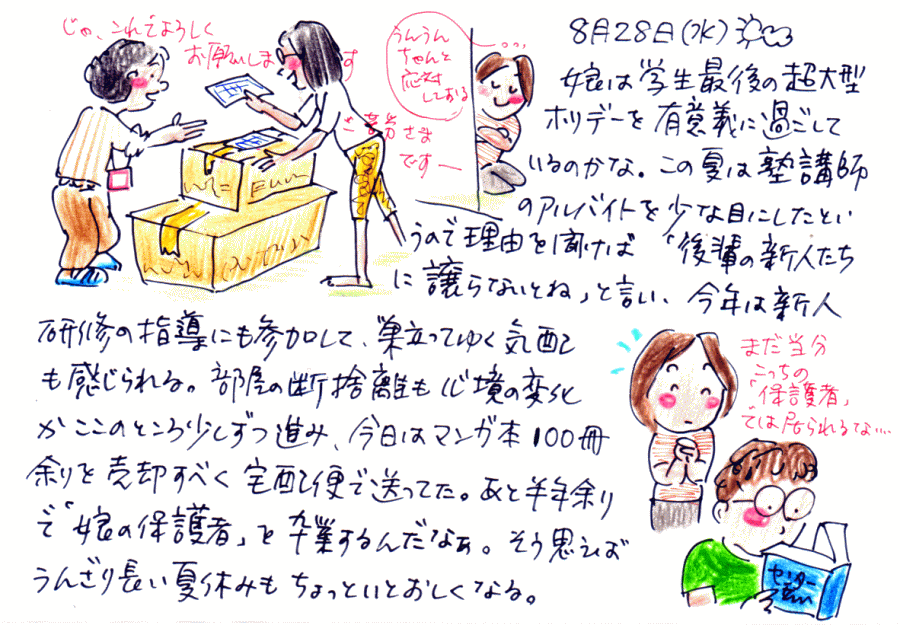 じゃ、これでよろしく
お願いします
うんうん
ちゃんと
応対
しておる
ご苦労さま
ですー
8月28日(水)
娘は学生最後の超大型
ホリデーを有意義に過ごして
いるのかな。この夏は塾講師
のアルバイトを少な目にしたとい
うので理由を聞けば「後輩の新人たち
に譲らないとね」と言い、今年は新人
研修の指導にも参加して、巣立ってゆく気配
も感じられる。部屋の断捨離も心境の変化
かここのところ少しずつ進み、今日はマンガ本100冊
余りを売却すべく宅配便で送ってた。あと半年余り
で「娘の保護者」を卒業するんだなぁ。そう思えば
うんざり長い夏休みもちょっといとおしくなる。
まだ当分
こっちの
「保護者」
では居られるな…
センター